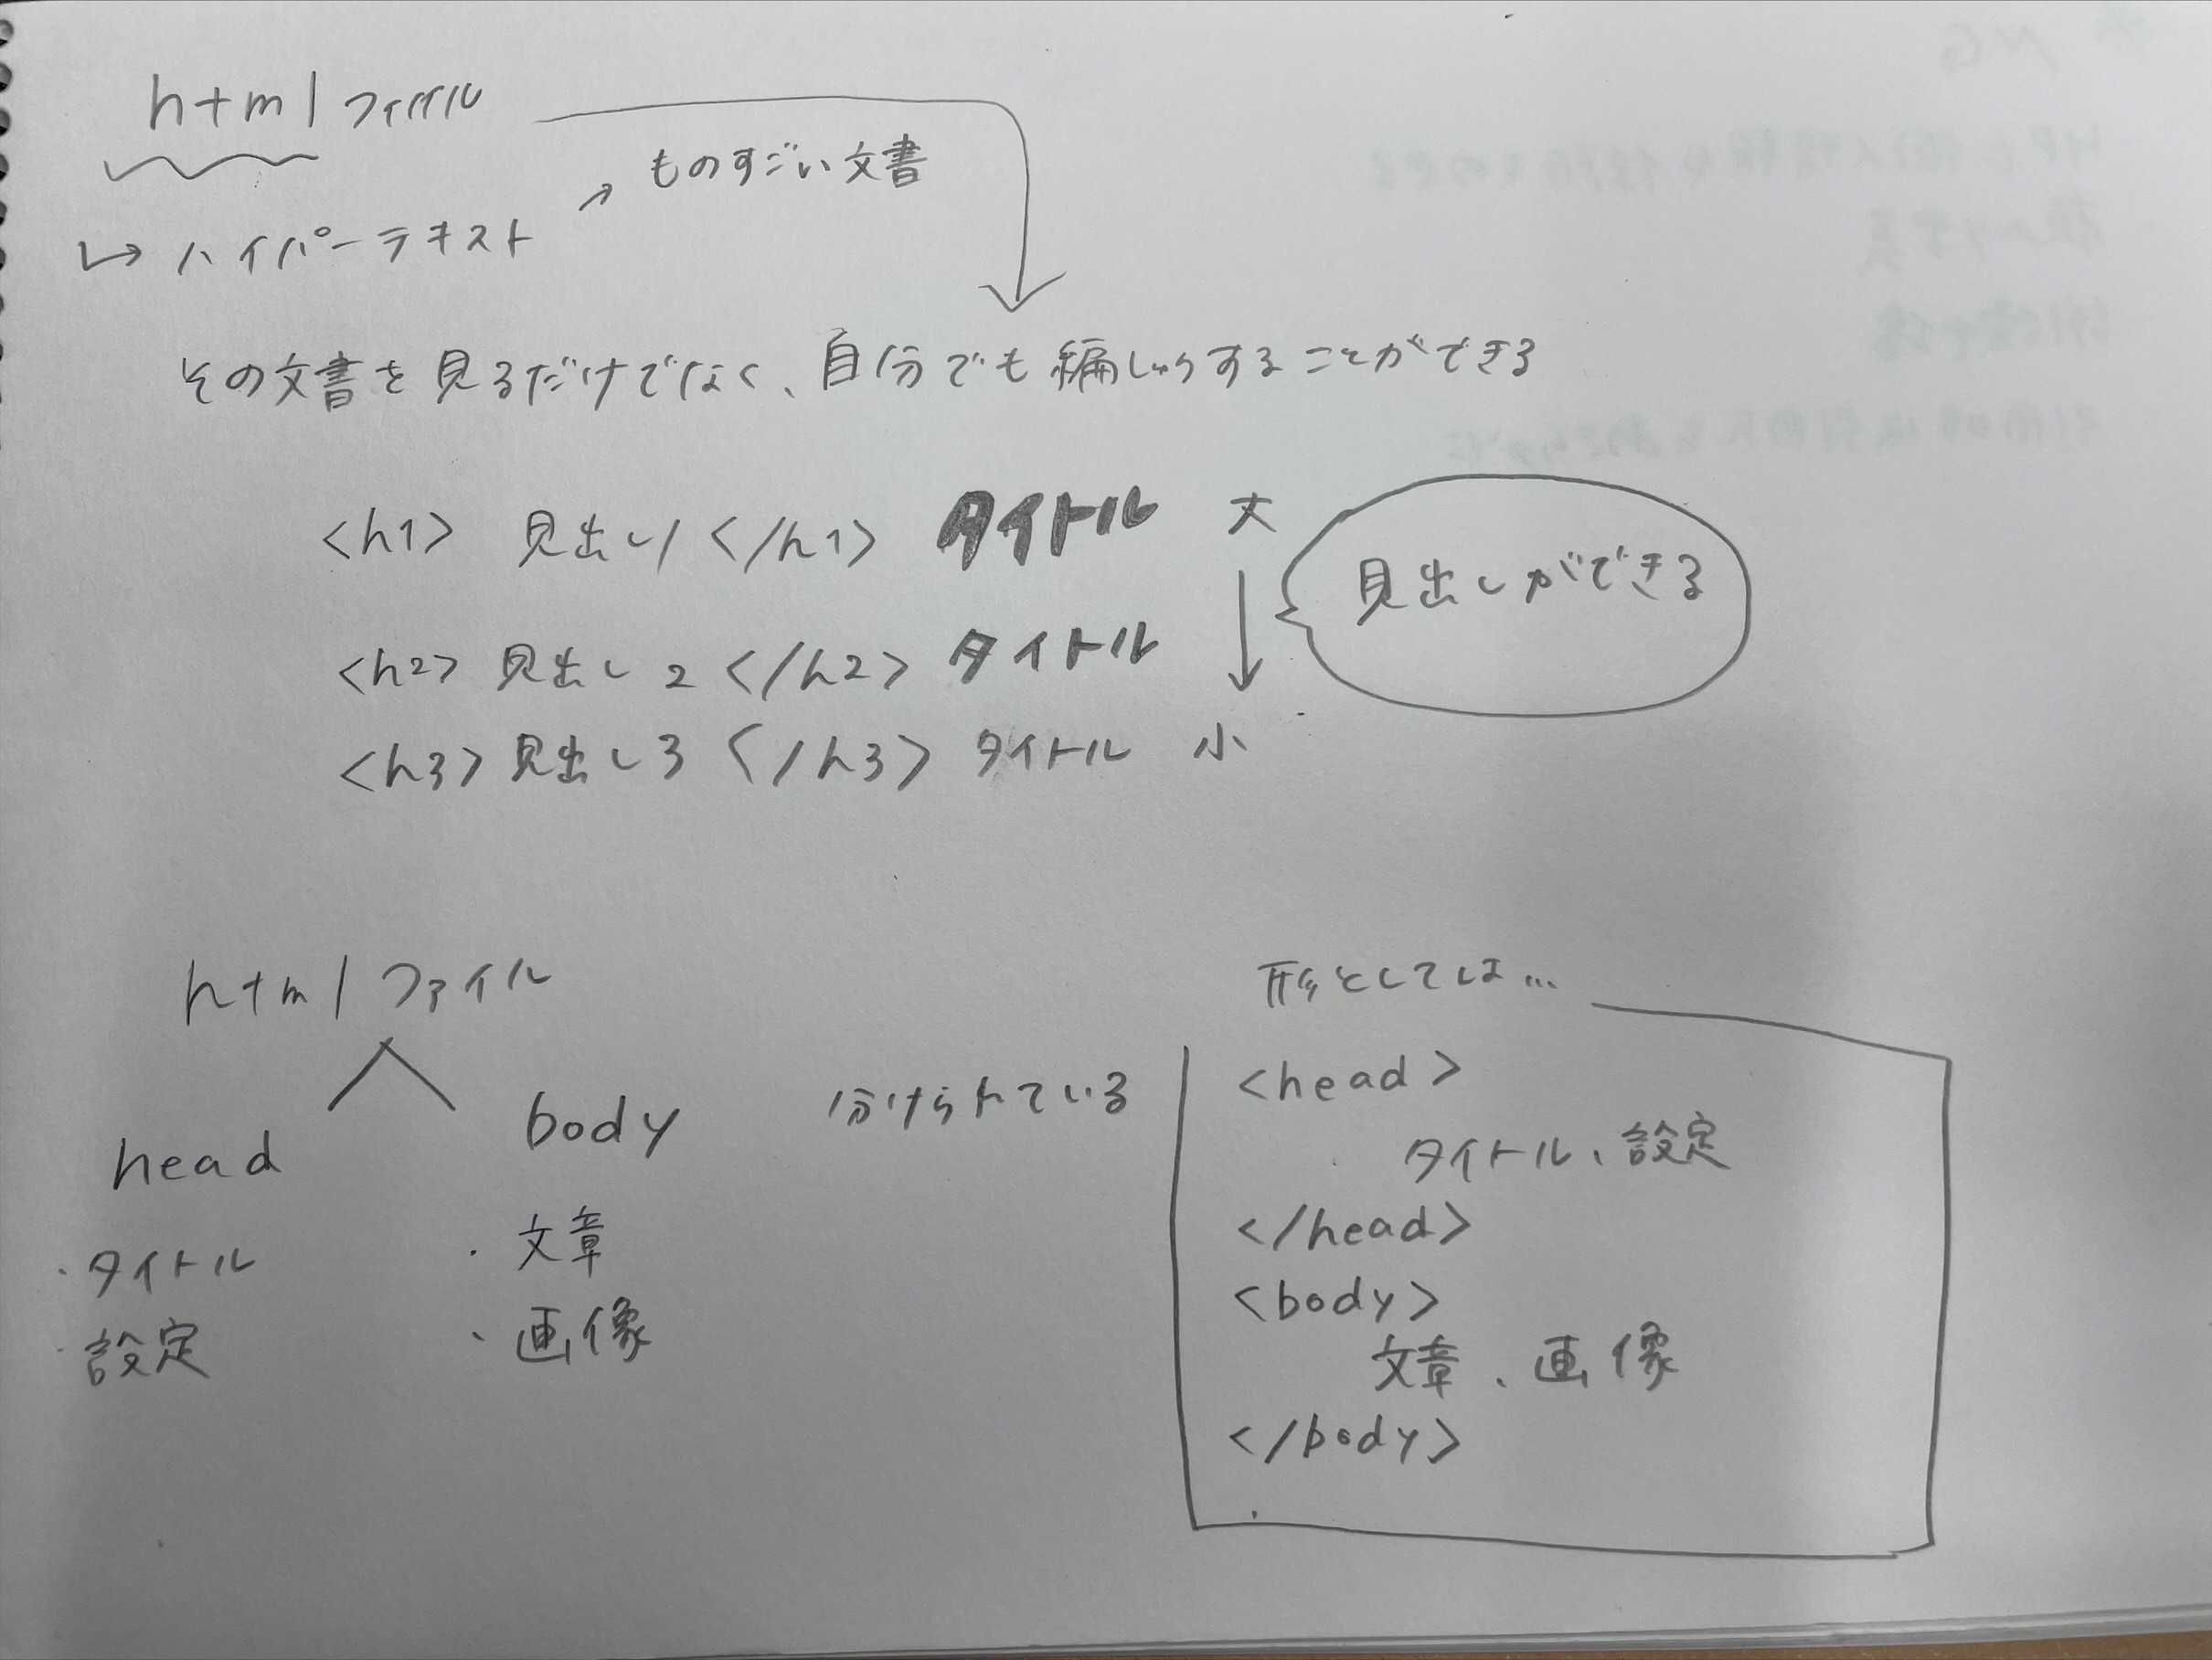 htmlファイル
↳ ハイパーテキスト ↗ ものすごい文書
その文書を見るだけでなく、自分でも編しゅうすることができる
<h1> 見出し1 </h1> タイトル 大
<h2> 見出し2 </h2> タイトル ↓
<h3> 見出し3 </h3> タイトル 小
見出しができる
htmlファイル
head body 分けられている
・タイトル ・文章
・設定 ・画像
形としては…
<head>
タイトル、設定
</head>
<body>
文章、画像
</body>